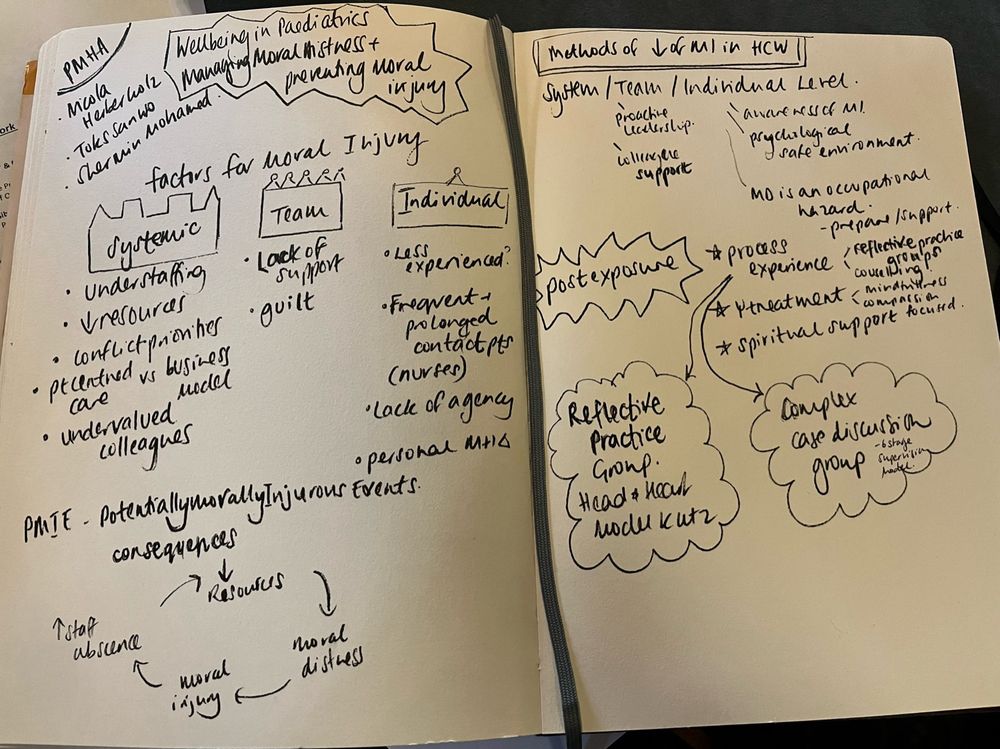 PMHA
Wellbeing in Paediatrics
Managing Moral Distress +
preventing Moral
injury
• Nicola
• Toks Sanwo
• Shermin Mohamed.
factors for Moral Injury
Systemic
• understaffing
• ↓ resources
• conflict priorities
• pt centred vs business
care model
• undervalued
colleagues
Team
• Lack of
support
• guilt
Individual
• Less
experienced?
• Frequent +
prolonged
contact pts
(nurses)
• Lack of agency
• personal MH Δ
PMIE - Potentially morally Injurous Events.
consequences
↓
Resources
moral
distress
moral
injury
↑ staff
abscence
Methods of ↓ of MI in HCW
System / Team / Individual Level.
proactive
leadership.
colleagues
support
awareness of MI.
psychological
safe environment.
MD is an occupational
hazard.
- prepare / support.
post exposure
* process
experience
reflective practice
groups
couselling!
* Ψ treatment
mindfulness
compassion
* spiritual support focused.
Reflective
Practice
Group.
Head & Heart
Model Kutz
Complex
case discussion
group
- 6 stage
supervision
model.